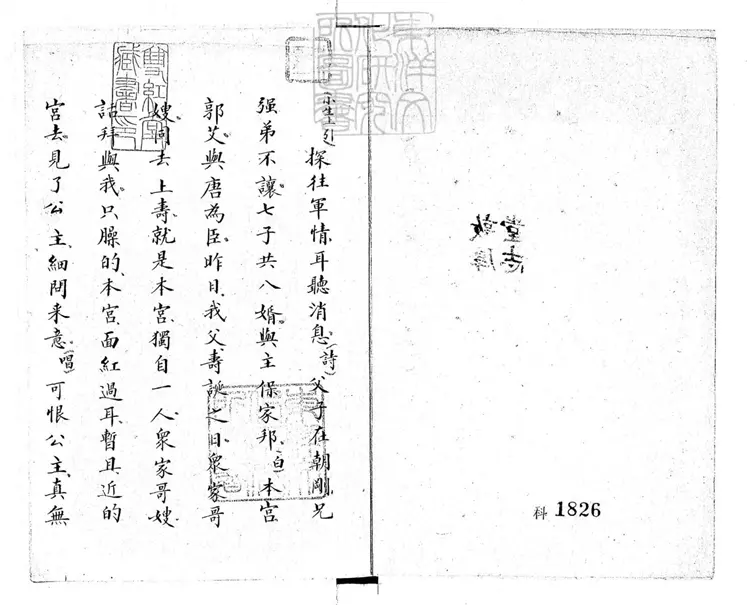 東洋文化研究所圖書
雙紅堂藏書印
(小生上引)探往軍情、耳聽消息、(詩)父子在朝剛、兄
强弟不讓。七子共八婿。與主保家邦、(白)本宮
郭艾。與唐為臣。昨日、我父、壽誕之日、衆家哥
嫂、同去上壽、就是本宮、獨自一人、衆家哥嫂、
拜與我。只臊的、本宮、面紅過耳、暫且近的
宮去。見了公主、細問来意。(唱)可恨公主、真無
科 1826